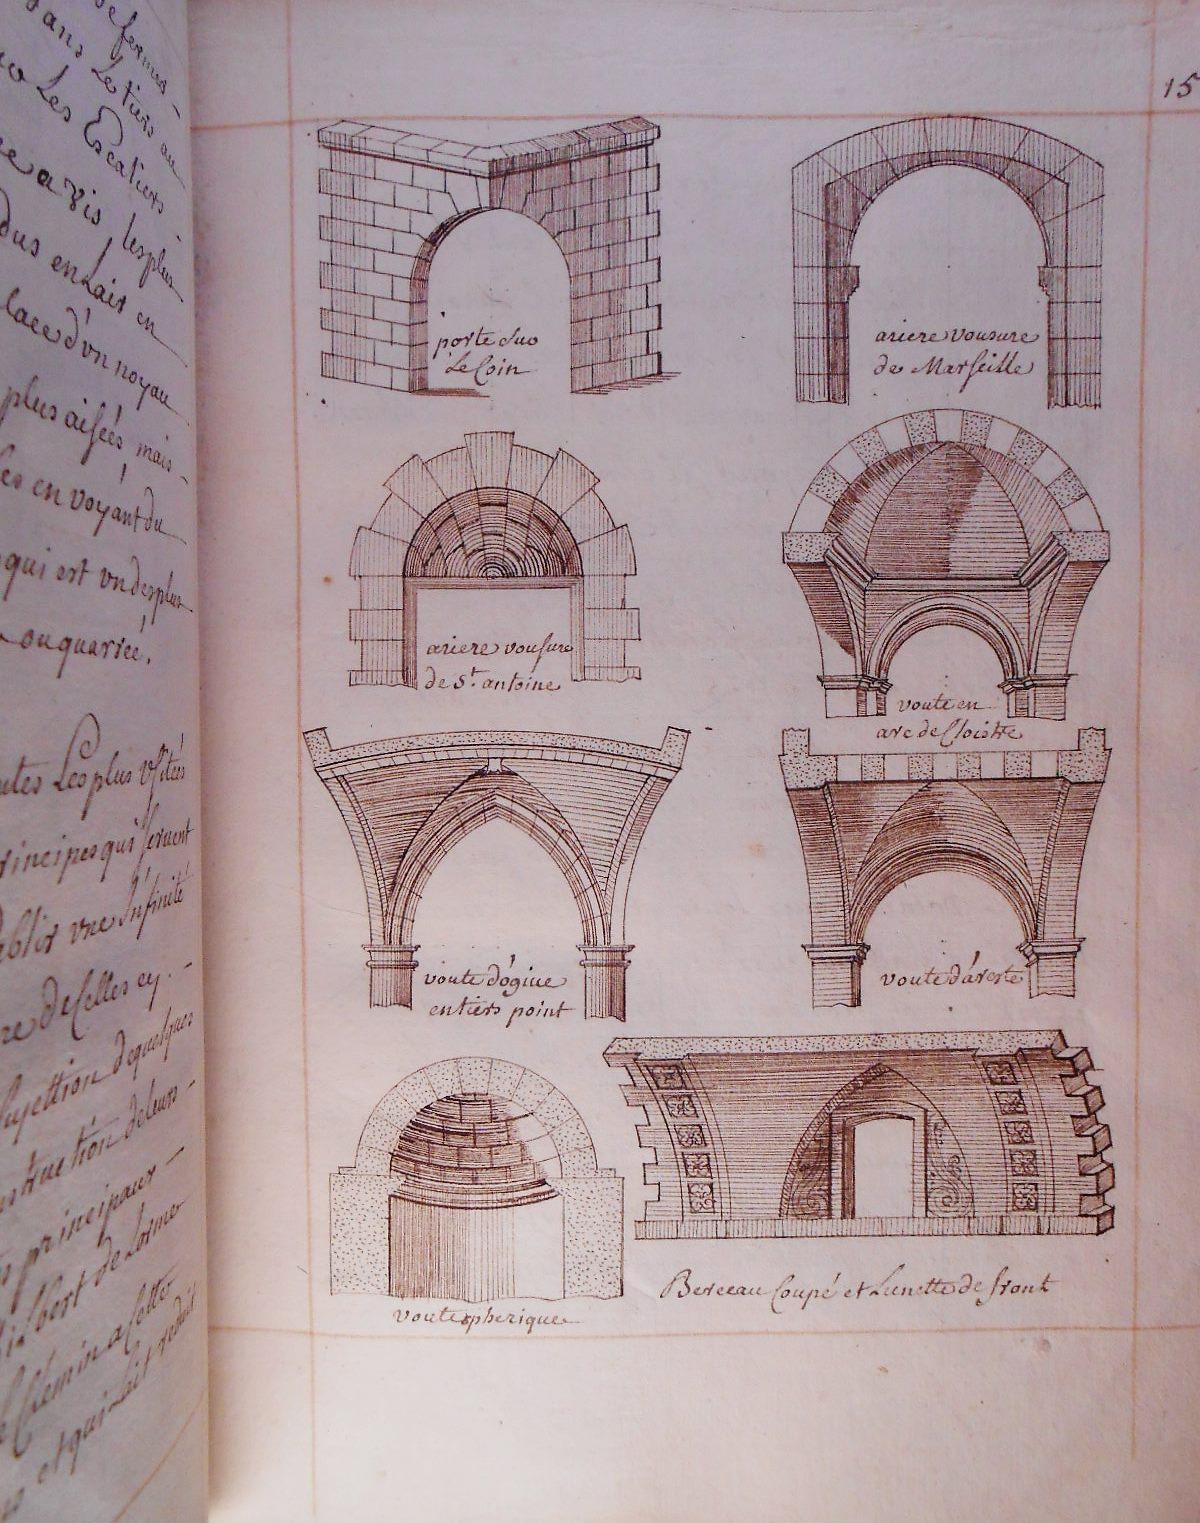 de fermes -
dans Le tiers au
Les Escaliers
a vis, les plus
dus en Lair en
place d'vn noyau
plus aisées, mais -
en voyant du
qui est vn des plus
ou quarrée,
Les plus Vsitées
principes qui seruent
vne Infinité
de Celles cy. -
sujettion de quelques
de Leurs -
principaux -
de Lorme
chemin a Cette
et qui Lait reduit
15
porte sur
Le Coin
ariere vousure
de Marseille
ariere vousure
de St. antoine
voute en
arc de Cloistre
voute d'ogiue
en tiers point
voute d'areste
voute spherique
Berceau Coupé et Lunette de front